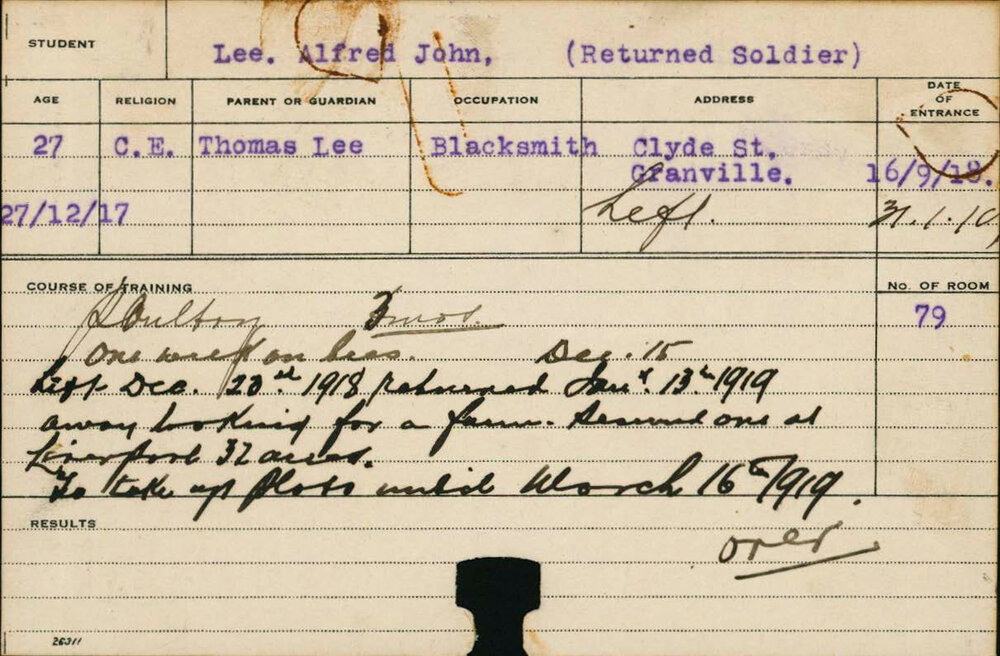 STUDENT
Lee. Alfred John, (Returned Soldier)
AGE RELIGION PARENT OR GUARDIAN OCCUPATION ADDRESS DATE OF ENTRANCE
27 C.E. Thomas Lee Blacksmith Clyde St.
Granville. 16/9/18.
27/12/17 Left. 31.1.19
COURSE OF TRAINING No. OF ROOM
Poultry 3 mos. 79
One week on bees. Dec. 15
Left Dec. 20th 1918 returned Jany 13th 1919
away looking for a farm. Secured one at
Liverpool 32 acres.
To take up Plots until March 16th 1919.
RESULTS
over
26311